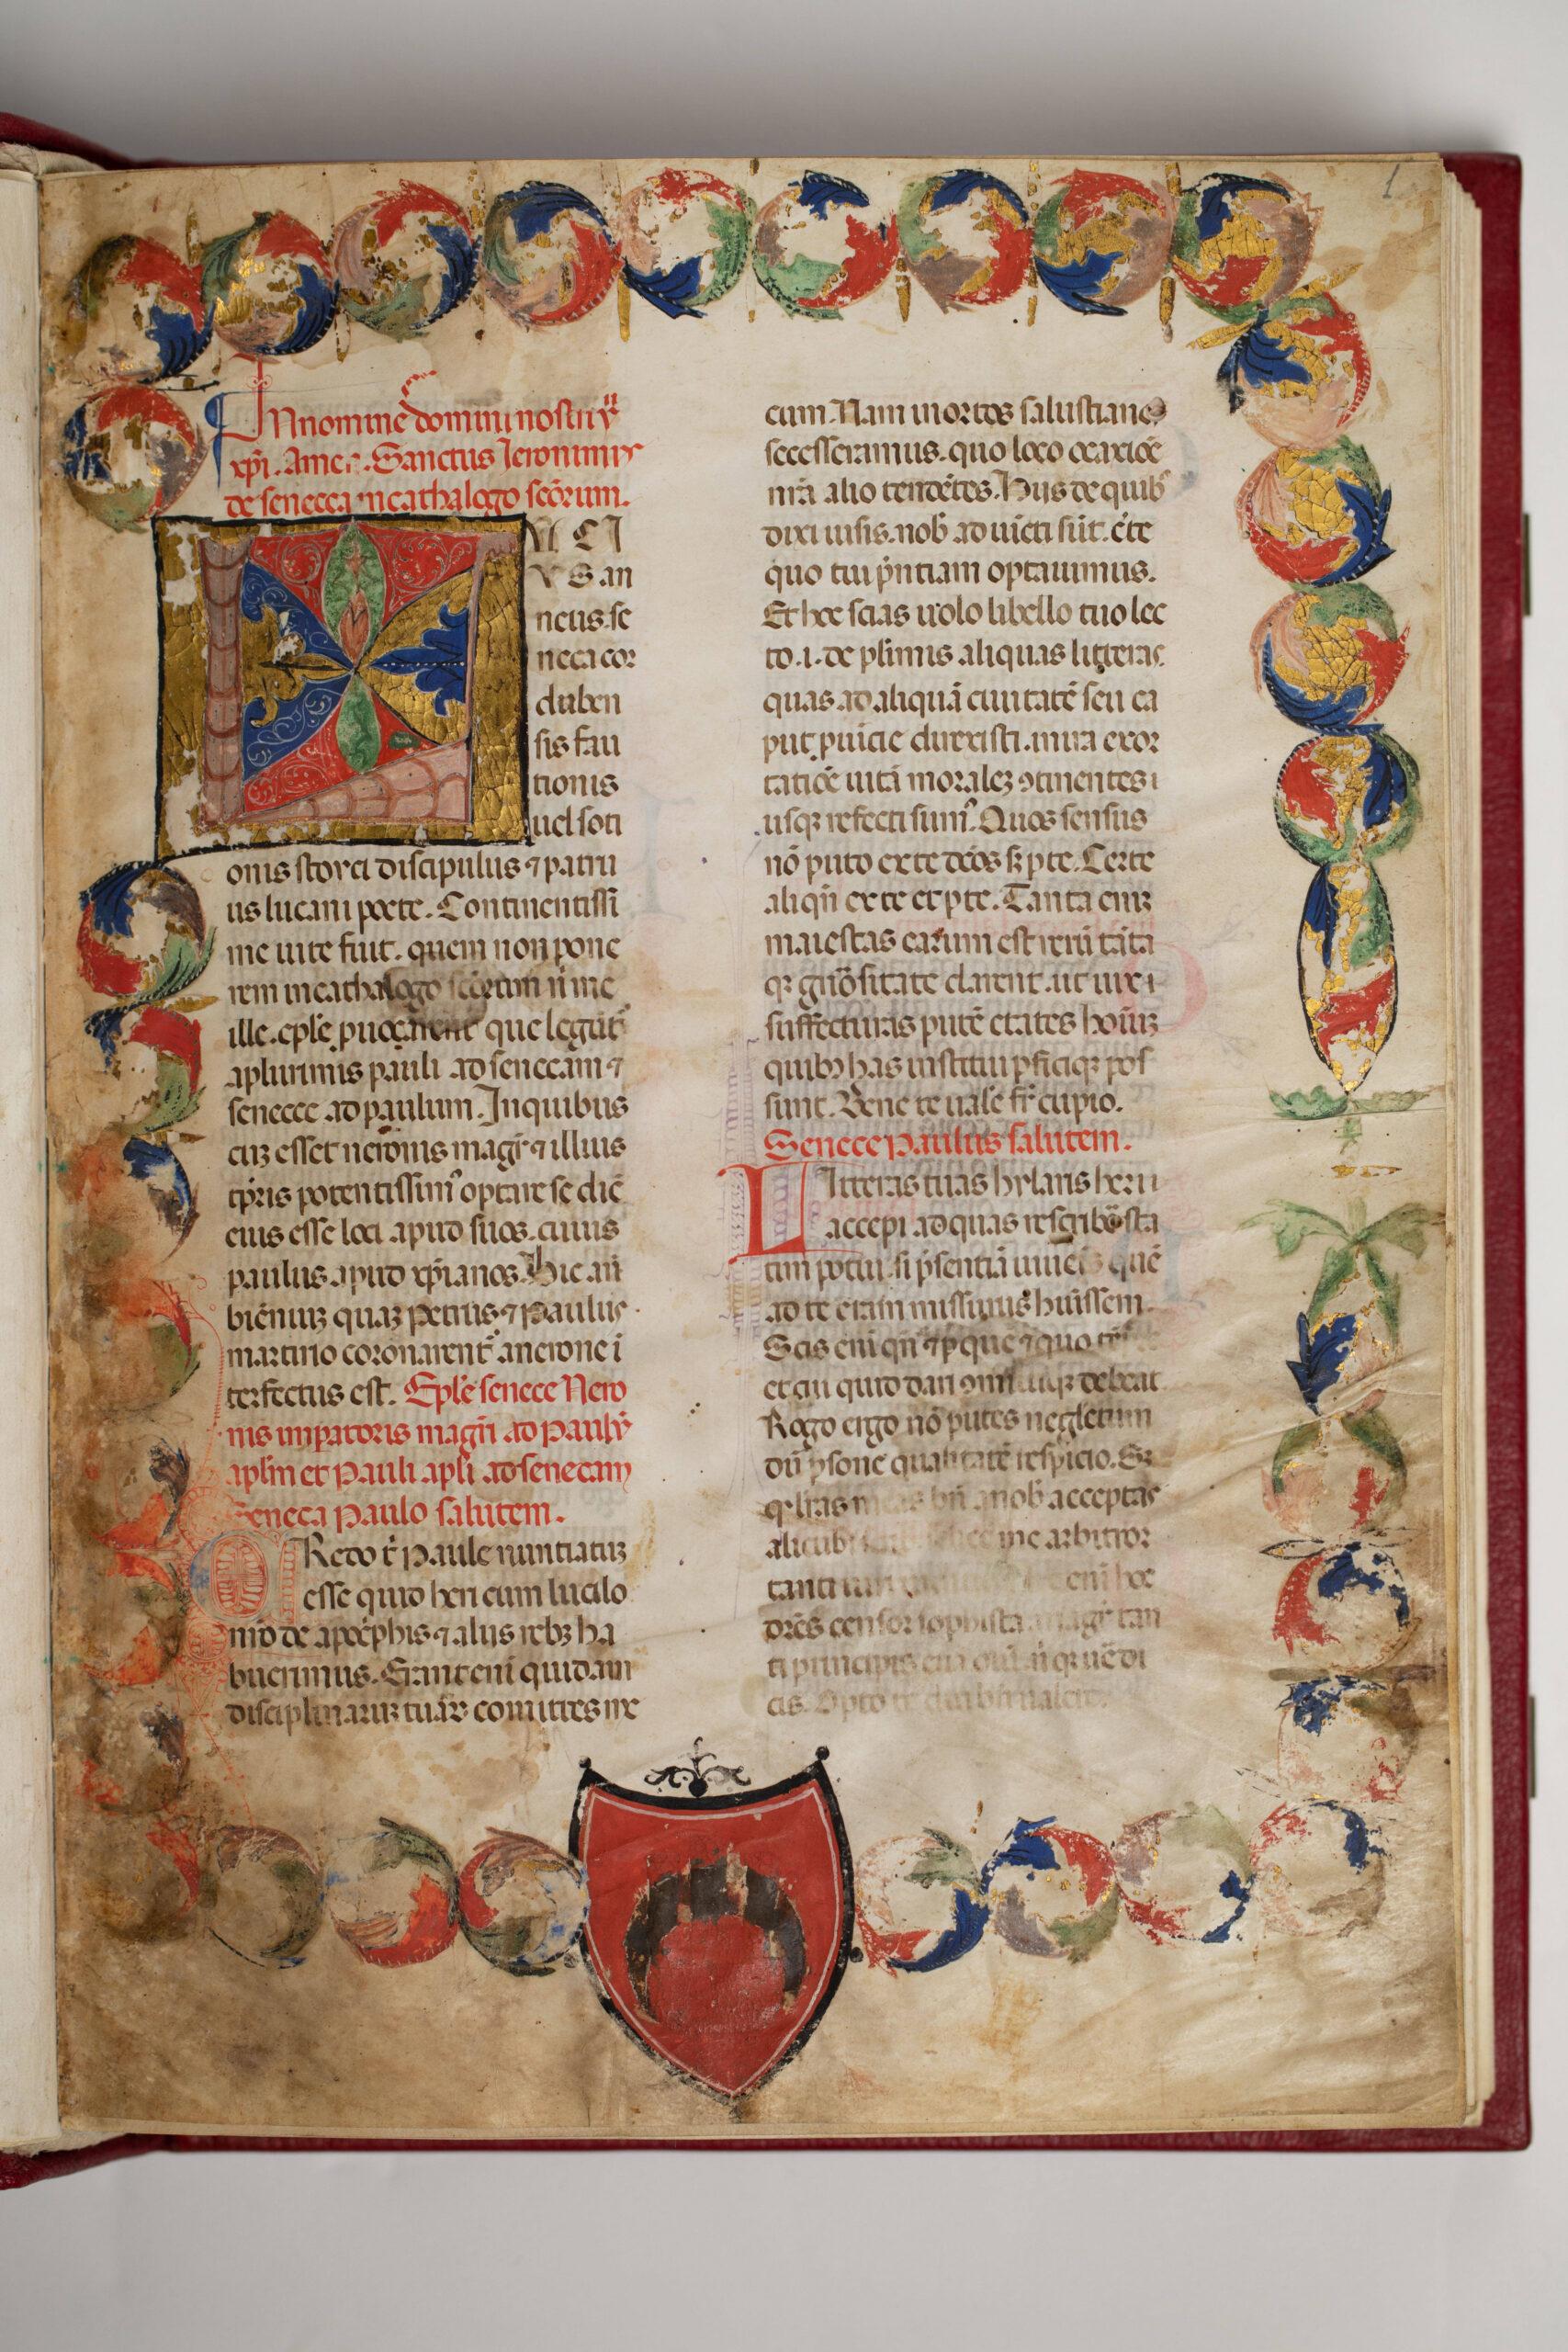 1
In nomine domini nostri yħu
xp̄i. Amen. Sanctus Ieronimus
de senecca in cathalogo sc̄orum.
L U C I
V S an
neus se
neca cor
duben
sis fau
tionis
uel soti
onis stoyci discipulus ⁊ patru
us lucani poete. Continentissi
me uite fuit. quem non pone
rem in cathalogo sc̄orum ni me
ille ep̄le puocarent que legūt᷑
a plurimis pauli ad senecam ⁊
senece ad paulum. In quibus
cuꝫ esset neronis magr̄ ⁊ illius
tp̄ris potentissim᷒ optare se dic̄
eius esse loci apud suos. cuius
paulus apud xp̄ianos. Hic an̄
bienniuꝫ quaꝫ Petrus ⁊ Paulus
martirio coronarent᷑ a nerone i
terfectus est. Ep̄le senece Nero
nis imperatoris magr̄i ad Paulū
ap̄lm et Pauli ap̄li ad senecam
Seneca Paulo salutem.
CRedo t̄ Paule nuntiatuꝫ
esse quid heri cum lucilo
nr̄o de apoc̄phis ⁊ aliis rebꝫ ha
buerimus. Erant eni quidam
disciplinaruꝫ tuaꝝ comites me
cum. Nam in ortos salustianos
secesseramus. quo loco occaxiōe
nr̄a alio tendētes. Hiis de quib᷒
dixi uisis. nob̄ adiuncti sūt. c̄te
quo tui p̄ntiam optauimus.
Et hoc scias uolo libello tuo lec
to .i. de plimis aliquas litteras
quas ad aliquā ciuitatē seu ca
put puīcie direxisti. mira exor
tatiōe uitā moralez ꝯtinentes i
usqꝫ refecti sum᷒. Quos sensus
nō puto ex te dc̄os sꝫ p te. Certe
aliqn̄ ex te et p te. Tanta eniꝫ
maiestas earum est rerū tāta
qꝫ gn̄ositate clarent. ut uix i
suffecturas putē etates hoīuꝫ
quibꝫ has institui pficiqꝫ pos
sunt. Bene te uale fr̄ cupio.
Senece Paulus salutem.
LItteras tuas hylaris heri
accepi ad quas rescribe sta
tim potui. si p̄sentiā iuuēis quē
ad te eram missurus huissem.
Scis eni qn̄ ⁊ p que ⁊ quo
et cui quid dari debeat
Rogo ergo nō putes neglectum
dū psone qualitatē respicio. Sꝫ
q lr̄as meas bn̄ a nob̄ acceptas
me arbitror
eni hoc
dr̄es censor sophista magr̄ tan
ti principis
cis. Opto te diu bn̄ ualere